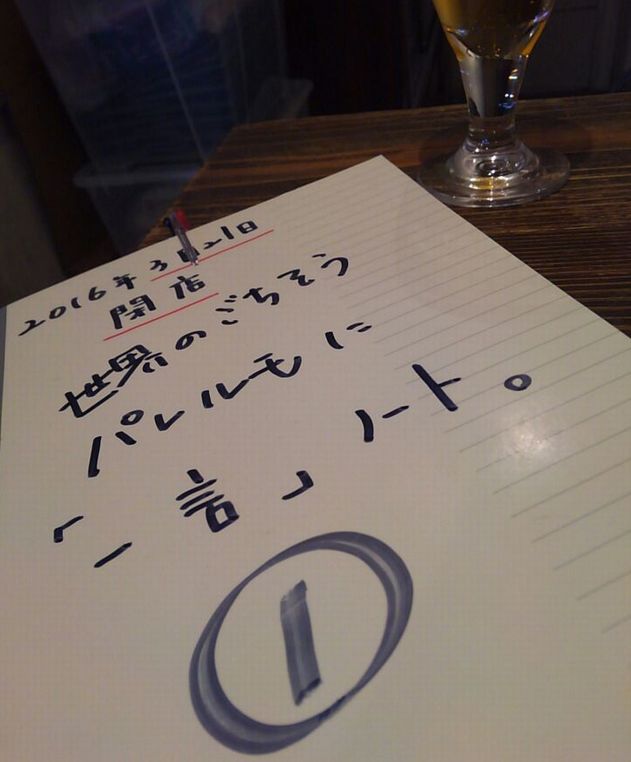 2016年3月21日
閉店
世界のごちそう
パレルモに
「一言」ノート。
1